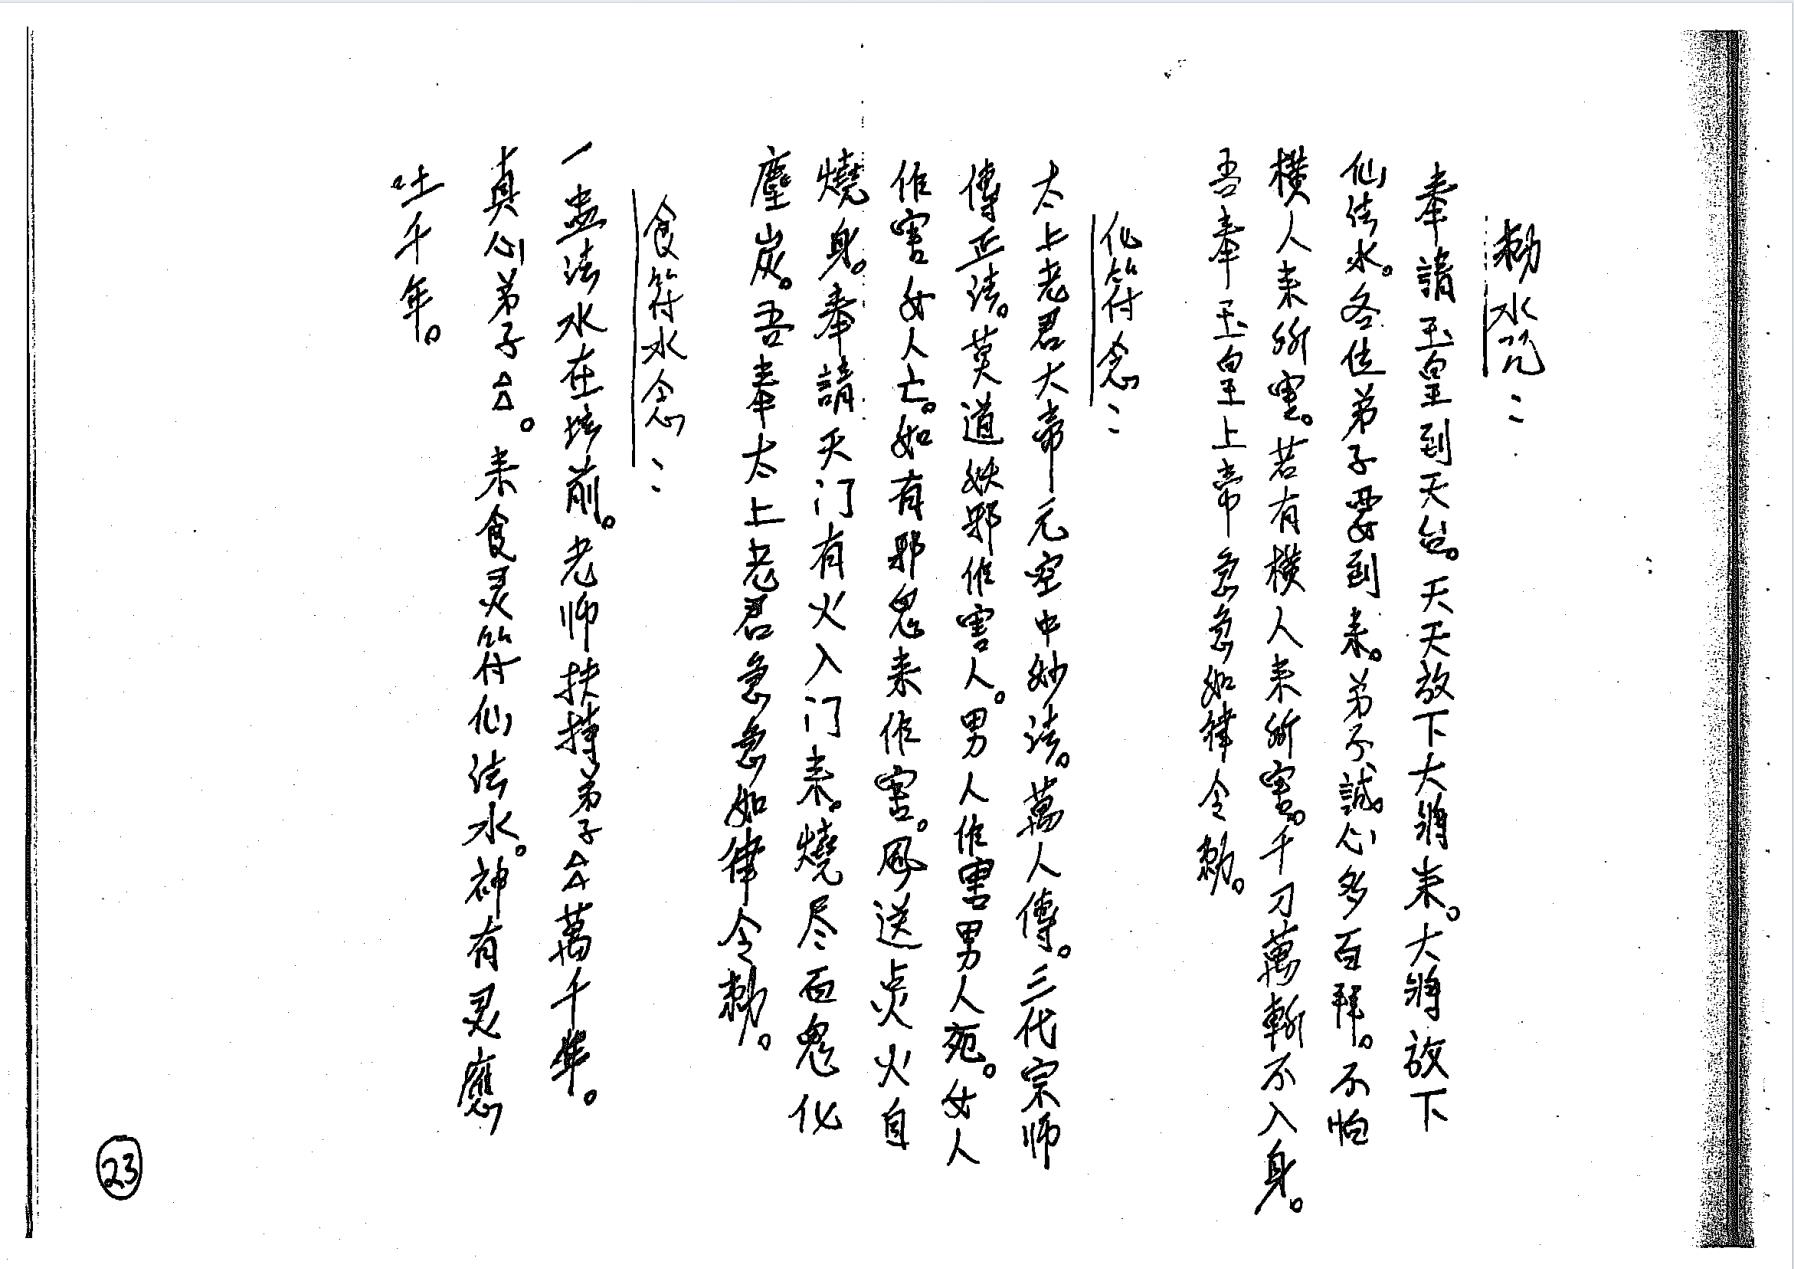 勅水咒：
奉請玉皇到天台。天天放下大將来。大將放下
仙法水。各位弟子要到来。弟子誠心多百拜。不怕
横人来斫害。若有横人来斫害。千刀萬斬不入身。
吾奉玉皇上帝急急如律令勅。
化符念：
太上老君大帝元空中妙法。萬人傳。三代宗师
傳正法。莫道妖邪作害人。男人作害男人死。女人
作害女人亡。如有邪鬼来作害。風送点火自
燒身。奉請天门有火入门来。燒尽百鬼化
塵炭。吾奉太上老君急急如律令勅。
食符水念：
一盅法水在坛前。老师扶持弟子△△萬千年。
真心弟子△△。来食灵符仙法水。神有灵應
吐千年。
23